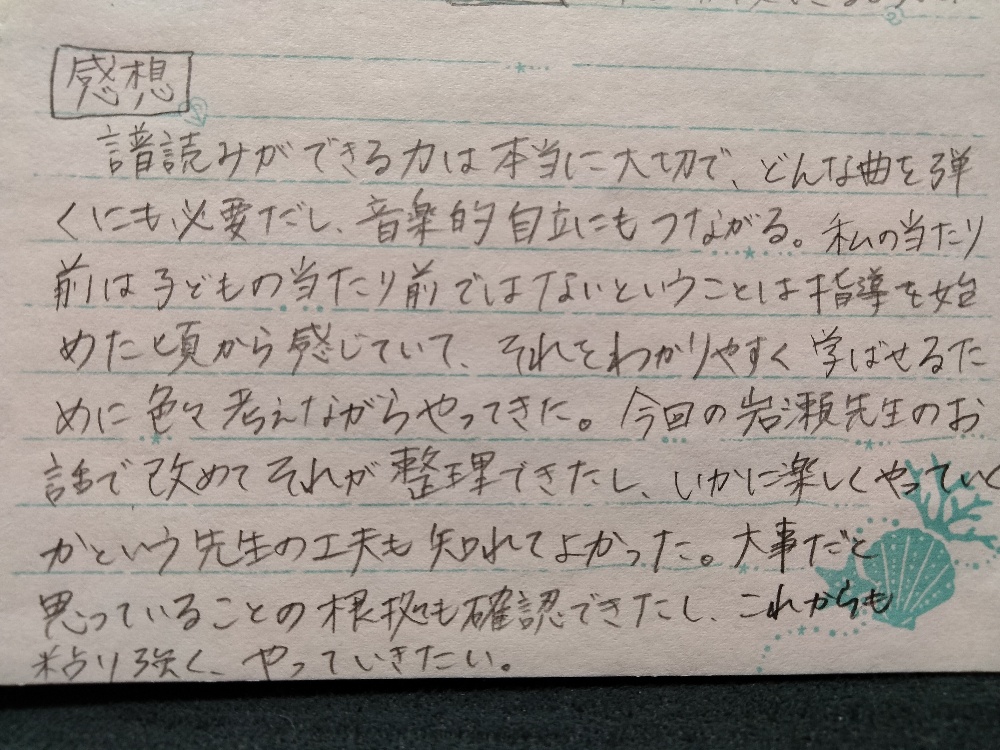 感想
譜読みができる力は本当に大切で、どんな曲を弾
くにも必要だし、音楽的自立にもつながる。私の当たり
前は子どもの当たり前ではないということは指導を始
めた頃から感じていて、それをわかりやすく学ばせるた
めに色々考えながらやってきた。今回の岩瀬先生のお
話で改めてそれが整理できたし、いかに楽しくやっていく
かという先生の工夫も知れてよかった。大事だと
思っていることの根拠も確認できたし、これからも
粘り強く、やっていきたい。